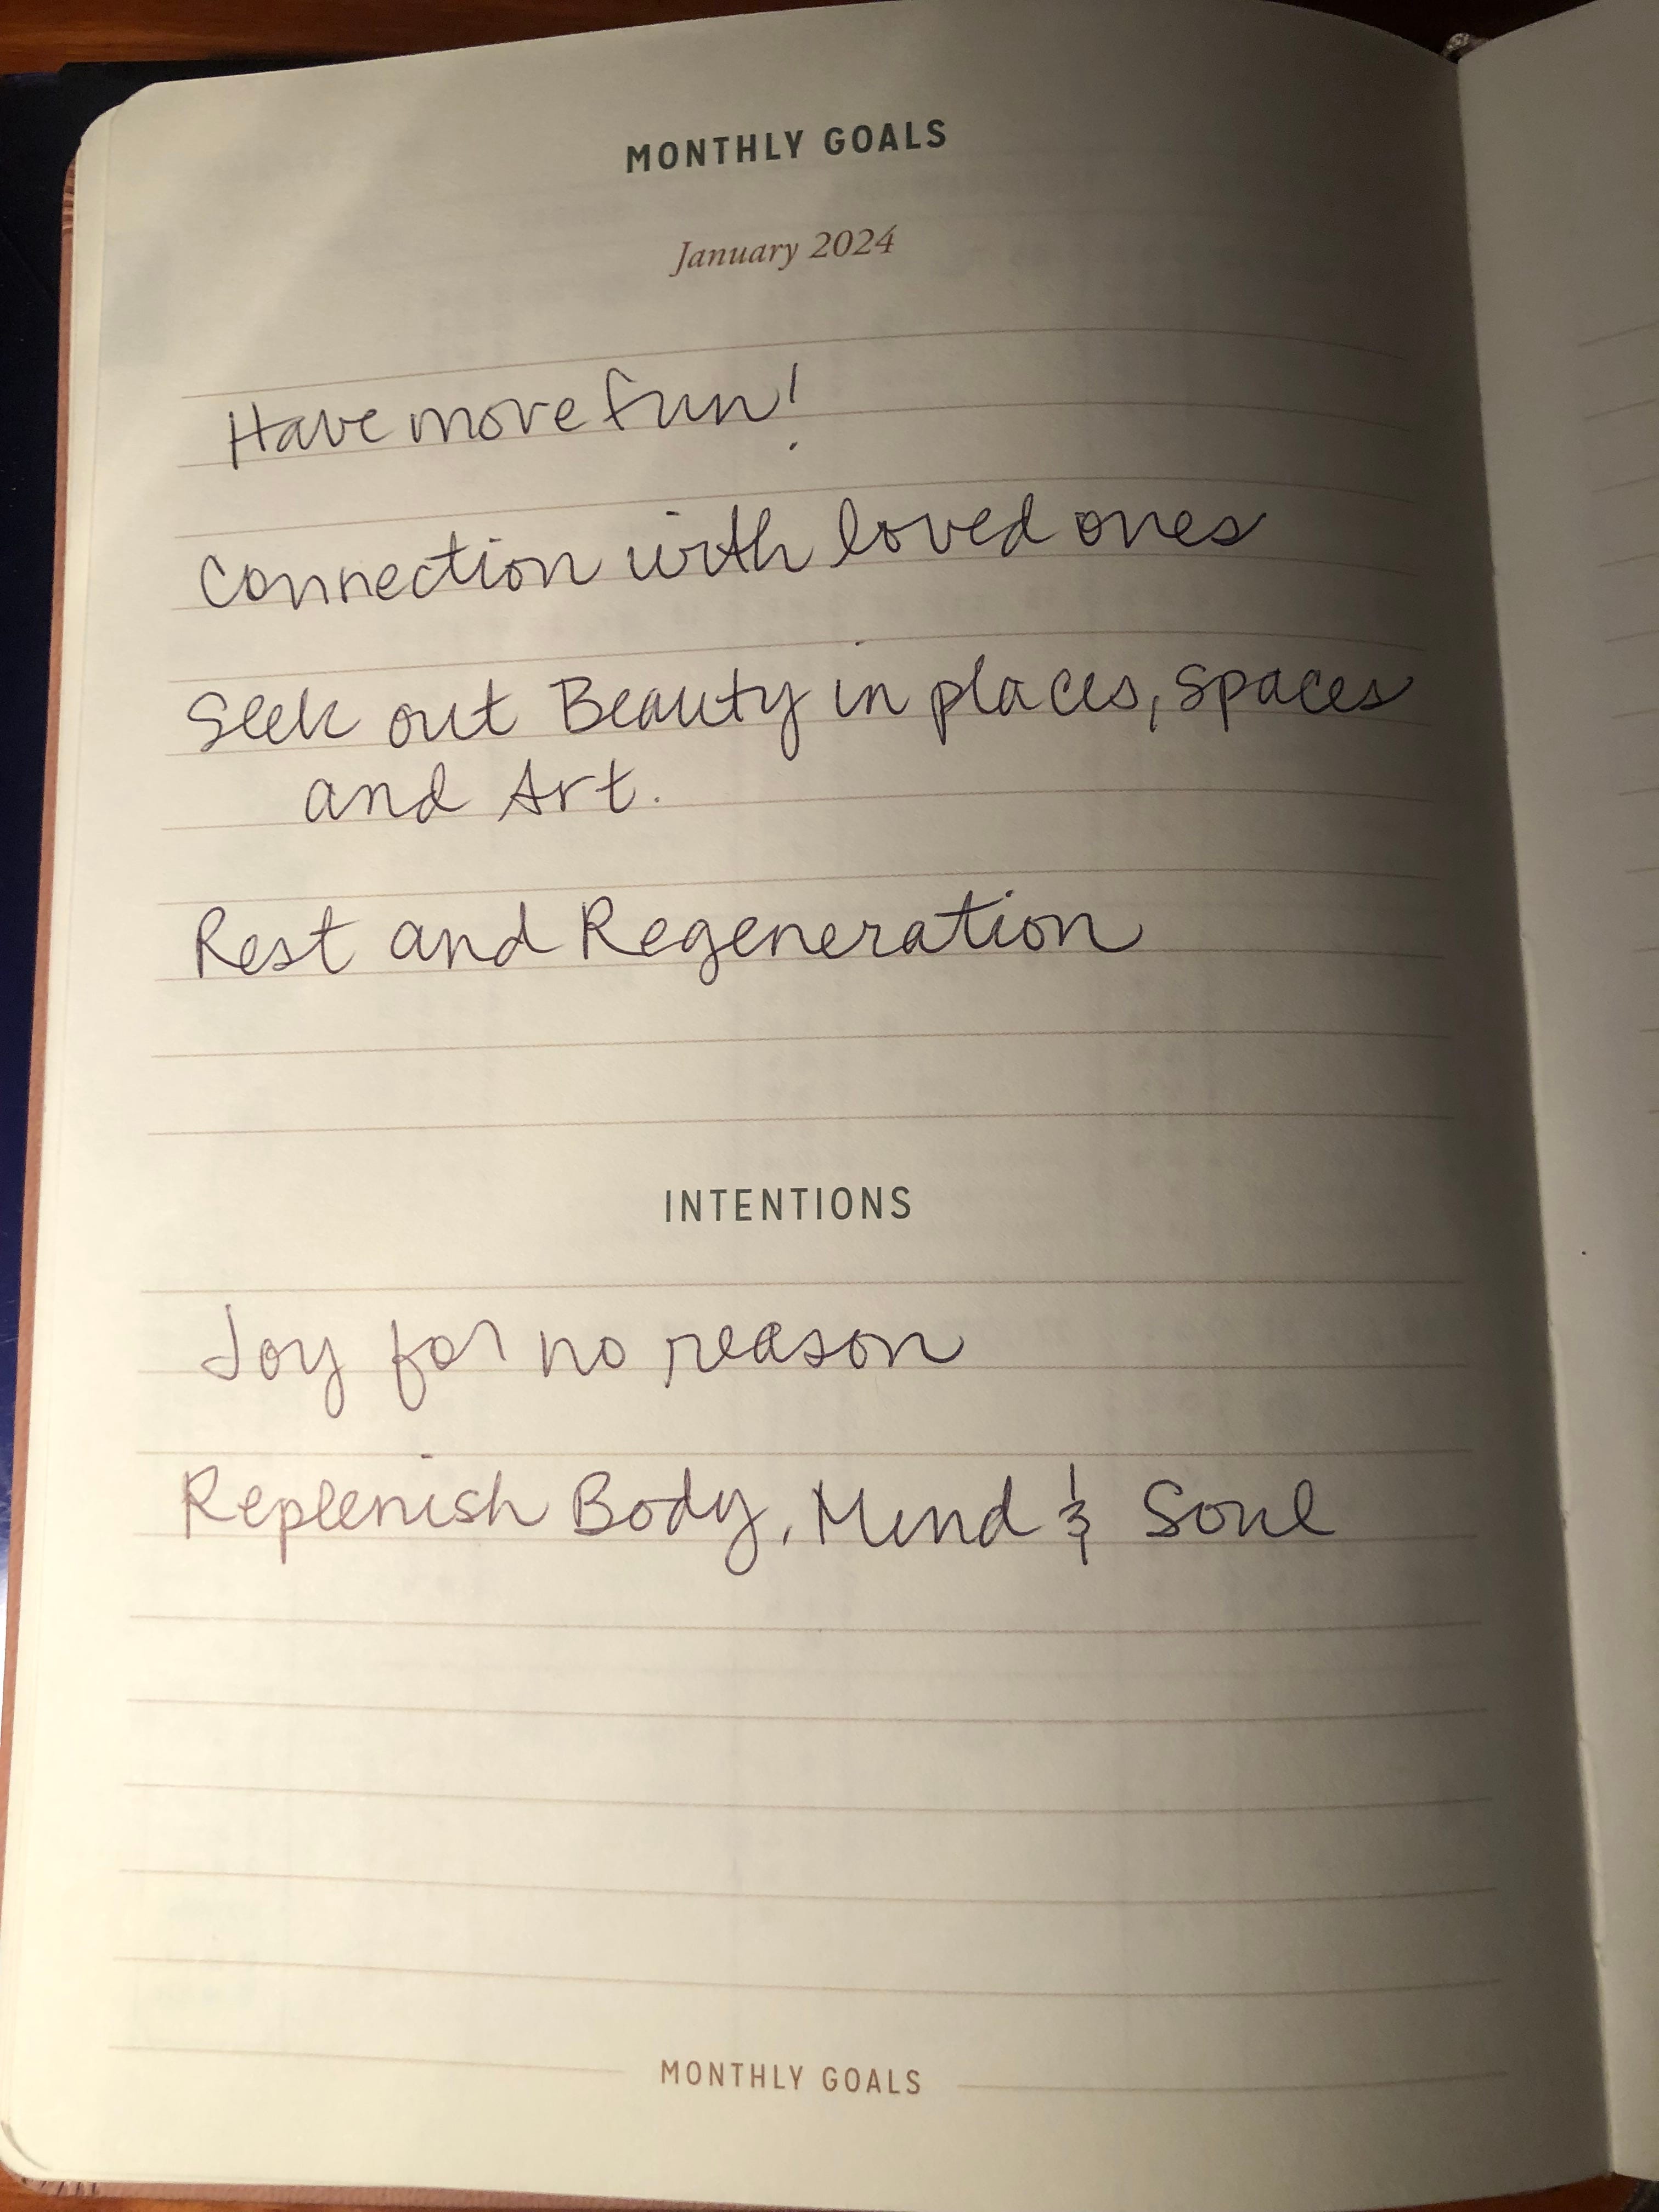 MONTHLY GOALS
January 2024
Have more fun!
Connection with loved ones
Seek out Beauty in places, spaces
and Art.
Rest and Regeneration
INTENTIONS
Joy for no reason
Replenish Body, Mind & Soul
MONTHLY GOALS